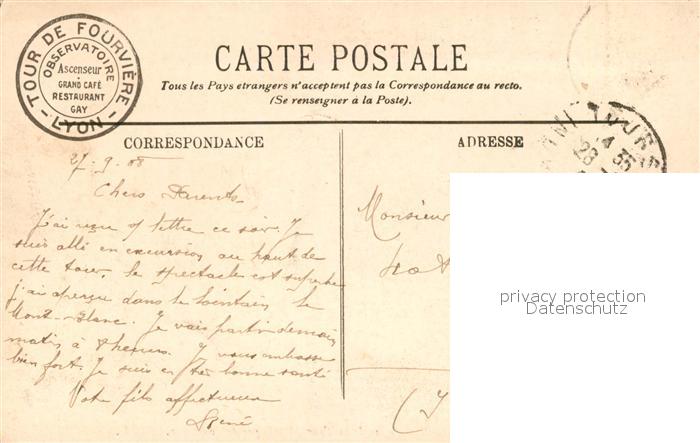 TOUR DE FOURVIÈRE
OBSERVATOIRE
Ascenseur
GRAND CAFÉ
RESTAURANT
GAY
LYON
CARTE POSTALE
Tous les Pays etrangers n'acceptent pas la Correspondance au recto.
(Se renseigner à la Poste).
CORRESPONDANCE
ADRESSE
27.9.08
Chers Parents
J'ai reçu vs lettre ce soir. Je
suis allé en excursion au haut de
cette tour, le spectacle est superbe
j'ai aperçu dans le lointain le
Mont-Blanc. Je vais partir demain
matin à 8 heures. Je vous embrasse
bien fort. Je suis en très bonne santé
Votre fils affectueux
René
Monsieur
privacy protection
Datenschutz